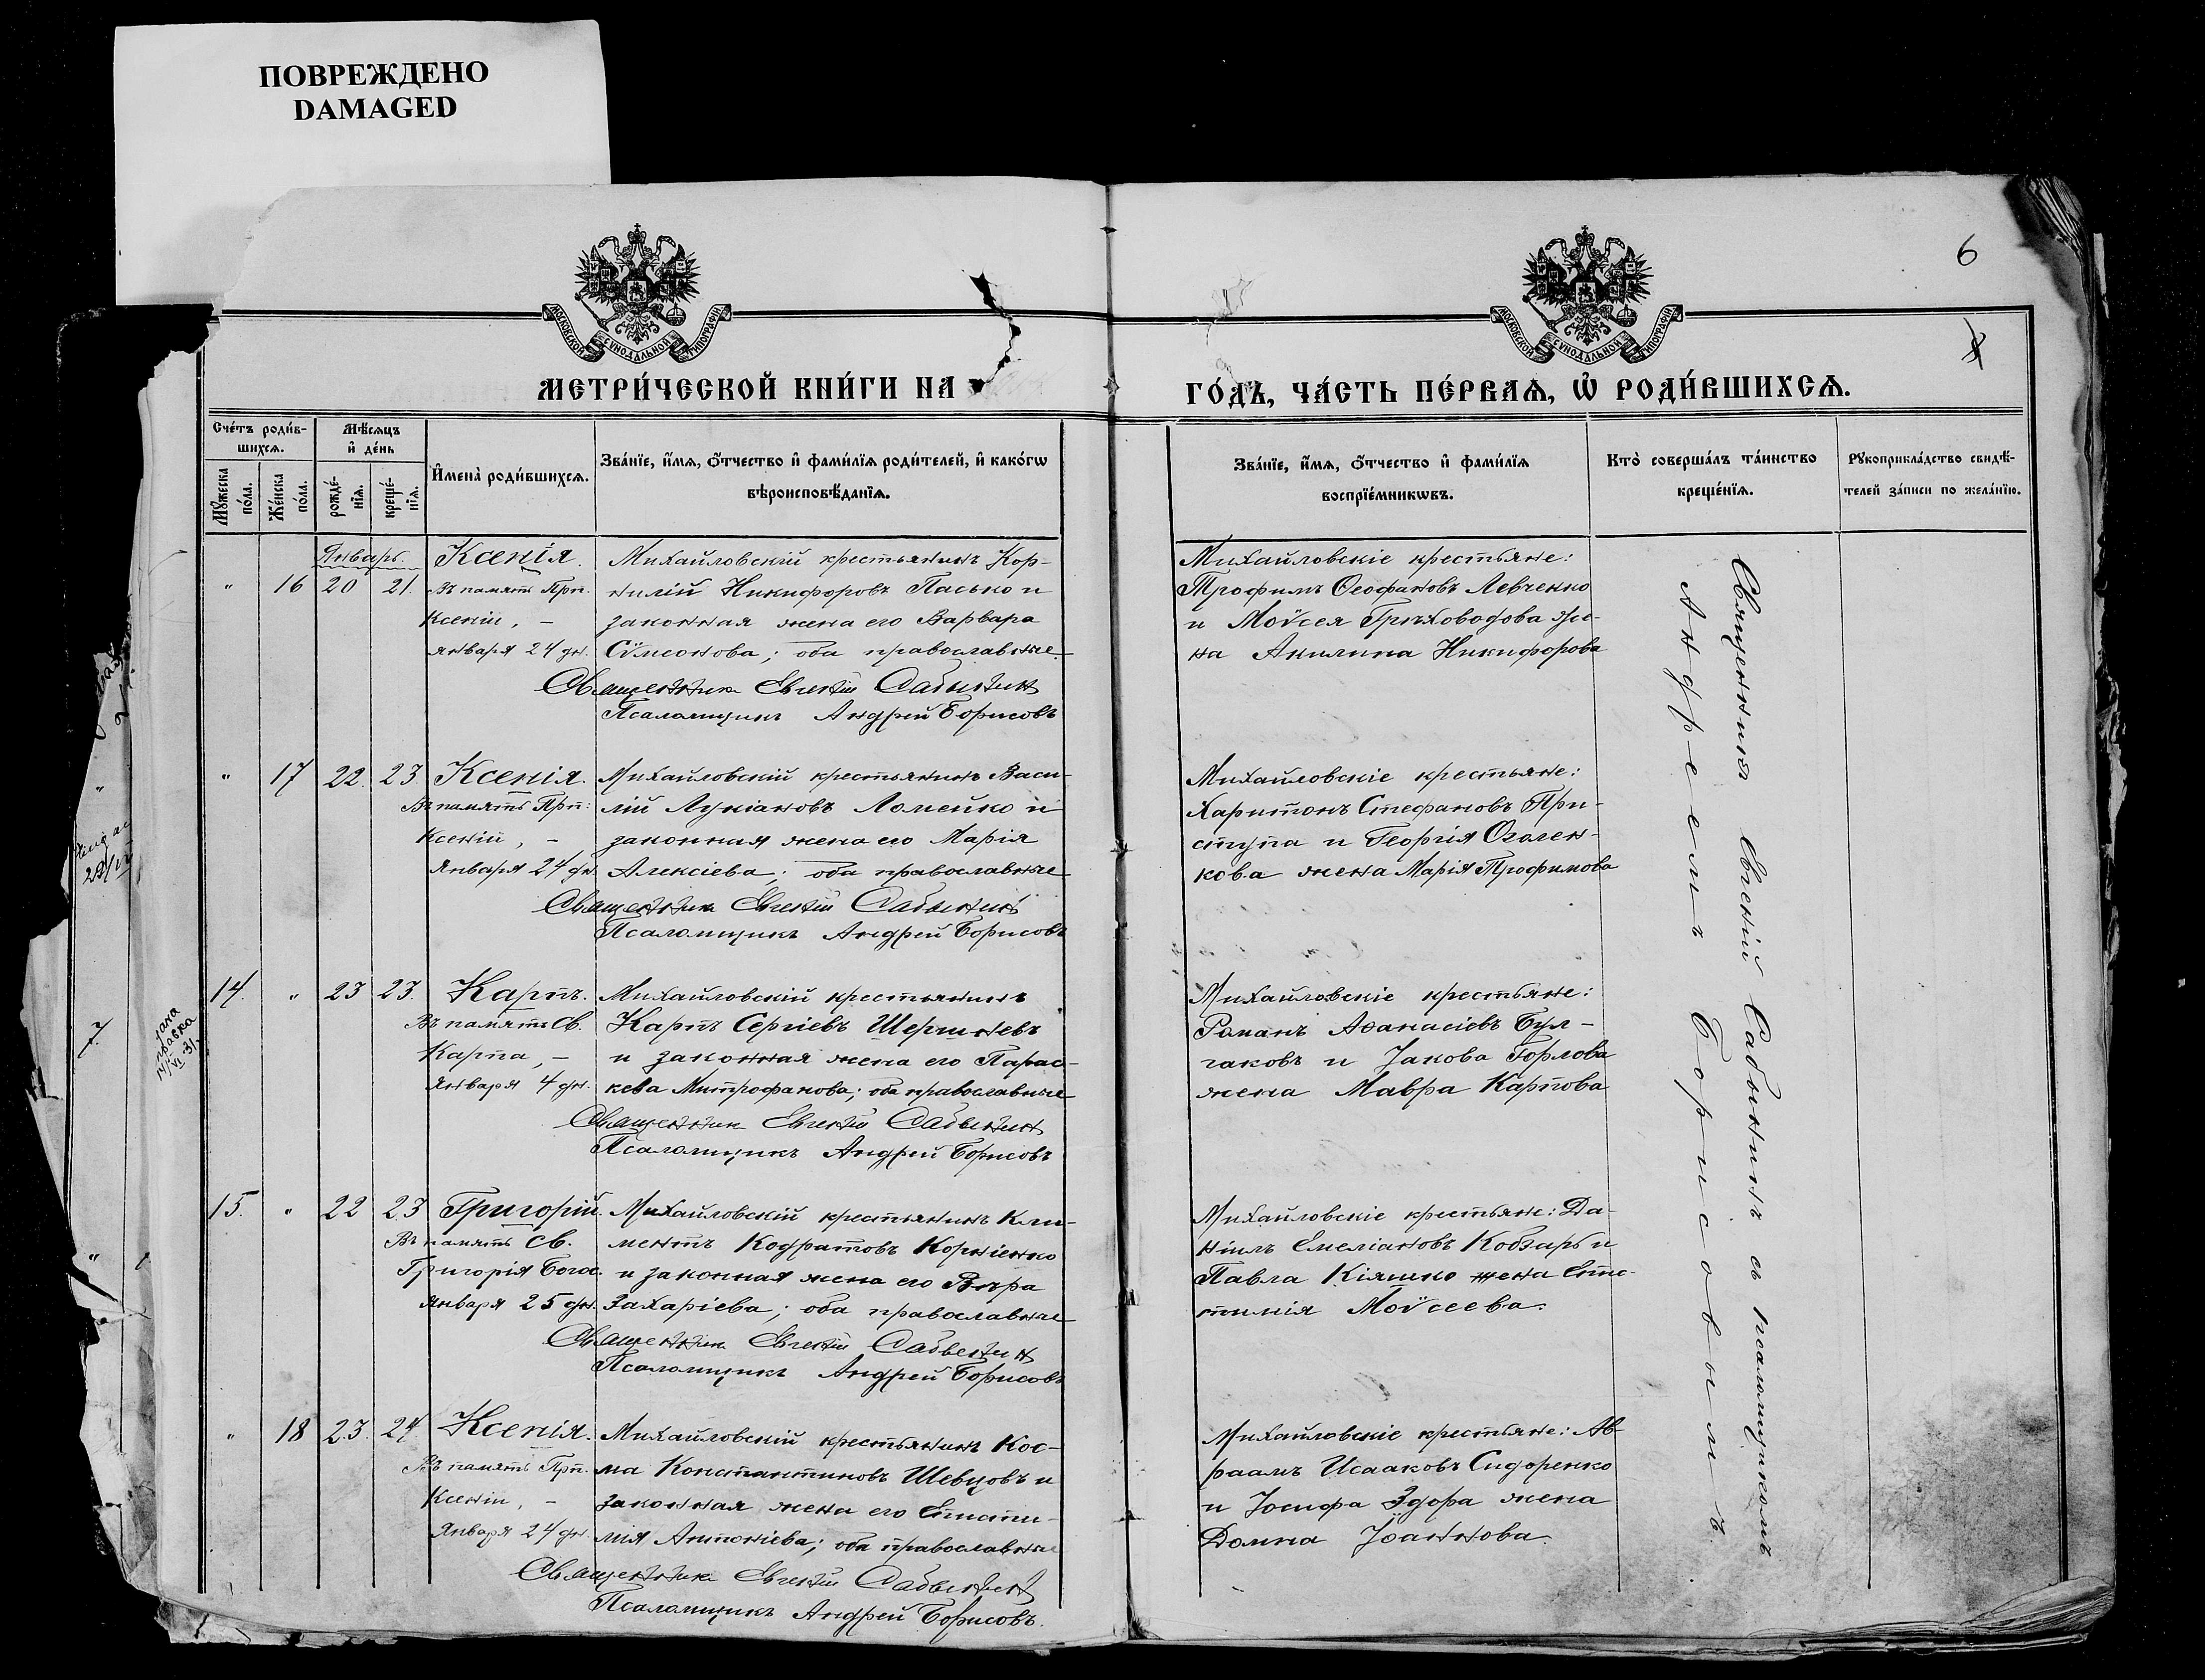 ПОВРЕЖДЕНО
DAMAGED
МОСКОВСКОЙ СѴНОДАЛЬНОЙ ТИПОГРАФІИ
МОСКОВСКОЙ СѴНОДАЛЬНОЙ ТИПОГРАФІИ
6
МЕТРИ́ЧЕСКОЙ КНИ́ГИ НА
ГО́ДЪ, ЧА́СТЬ ПЕ́РВАѦ, Ѡ҆ РОДИ́ВШИХСѦ.
Сче́тъ роди́в-
шихсѧ.
Мꙋжеска
по́ла.
Же́нска
по́ла.
Мѣ́сѧцъ
и҆ де́нь
рожде́-
нїѧ.
креще́-
нїѧ.
И҆мена̀ роди́вшихсѧ.
Зва́нїе, и҆́мѧ, ѻ҆́тчество и҆ фами́лїѧ роди́телей, и҆ како́гѡ
вѣроисповѣ́данїѧ.
Зва́нїе, и҆́мѧ, ѻ҆́тчество и҆ фами́лїѧ
воспрїе́мникѡвъ.
Кто̀ соверша́лъ та́инство
креще́нїѧ.
Рꙋкоприкла́дство свидѣ́-
телей за́писи по жела́нїю.
Январь.
" 16 20 21.
Ксенія.
Въ память Прп.
Ксеніи, —
января 24 дн.
Михайловскій крестьянинъ Кор-
нилій Никифоровъ Пасько и
законная жена его Варвара
Сѵмеонова; оба православные
Священникъ Евгеній Сабынин
Псаломщикъ Андрей Борисовъ
Михайловскіе крестьяне:
Трофимъ Ѳеофановъ Левченко
и Моѵсея Грѣховодова же-
на Акилина Никифорова
" 17 22. 23
Ксенія.
Въ память Прп:
Ксеніи, —
Января 24 дн.
Михайловскій крестьянинъ Васи-
лій Лукіановъ Ломейко и
законная жена его Марія
Алексіева; оба православные
Священникъ Евгеній Сабынинъ
Псаломщикъ Андрей Борисовъ
Михайловскіе крестьяне:
Харитонъ Стефановъ При-
ступа и Георгія Оголен-
кова жена Марія Трофимова
14. " 23 23.
Карпъ.
Въ память Св.
Карпа, —
января 4 дн.
Михайловскій крестьянинъ
Карпъ Сергіевъ Шершневъ
и законная жена его Парас-
кева Митрофанова; оба православные
Священникъ Евгеній Сабынин
Псаломщикъ Андрей Борисовъ
Михайловскіе крестьяне:
Романъ Аѳанасіевъ Бул-
гаковъ и Іакова Горлова
жена Мавра Карпова
15. " 22 23
Григорій.
Въ память Св.
Григорія Богос.
января 25 дн.
Михайловскій крестьянинъ Кли-
ментъ Кодратовъ Корніенко
и законная жена его Вѣра
Захаріева; оба православные
Священникъ Евгеній Сабынин
Псаломщикъ Андрей Борисовъ
Михайловскіе крестьяне: Да-
ніилъ Емеліановъ Кобзарь и
Павла Кіяшко жена Еѵѳи-
тимія Моѵсеева.
" 18 23. 24
Ксенія.
Въ память Прп.
Ксеніи, —
Января 24 дн.
Михайловскій крестьянинъ Кос-
ма Константиновъ Шевцовъ и
законная жена его
мія Антоніева; оба православные
Священникъ Евгеній Сабынин
Псаломщикъ Андрей Борисовъ.
Михайловскіе крестьяне: Ав-
раамъ Исааковъ Сидоренко
и Іосифа Здора жена
Домна Іоаннова.
Священникъ Евгеній Сабынинъ съ псаломщикомъ
Андреемъ Борисовымъ
7.